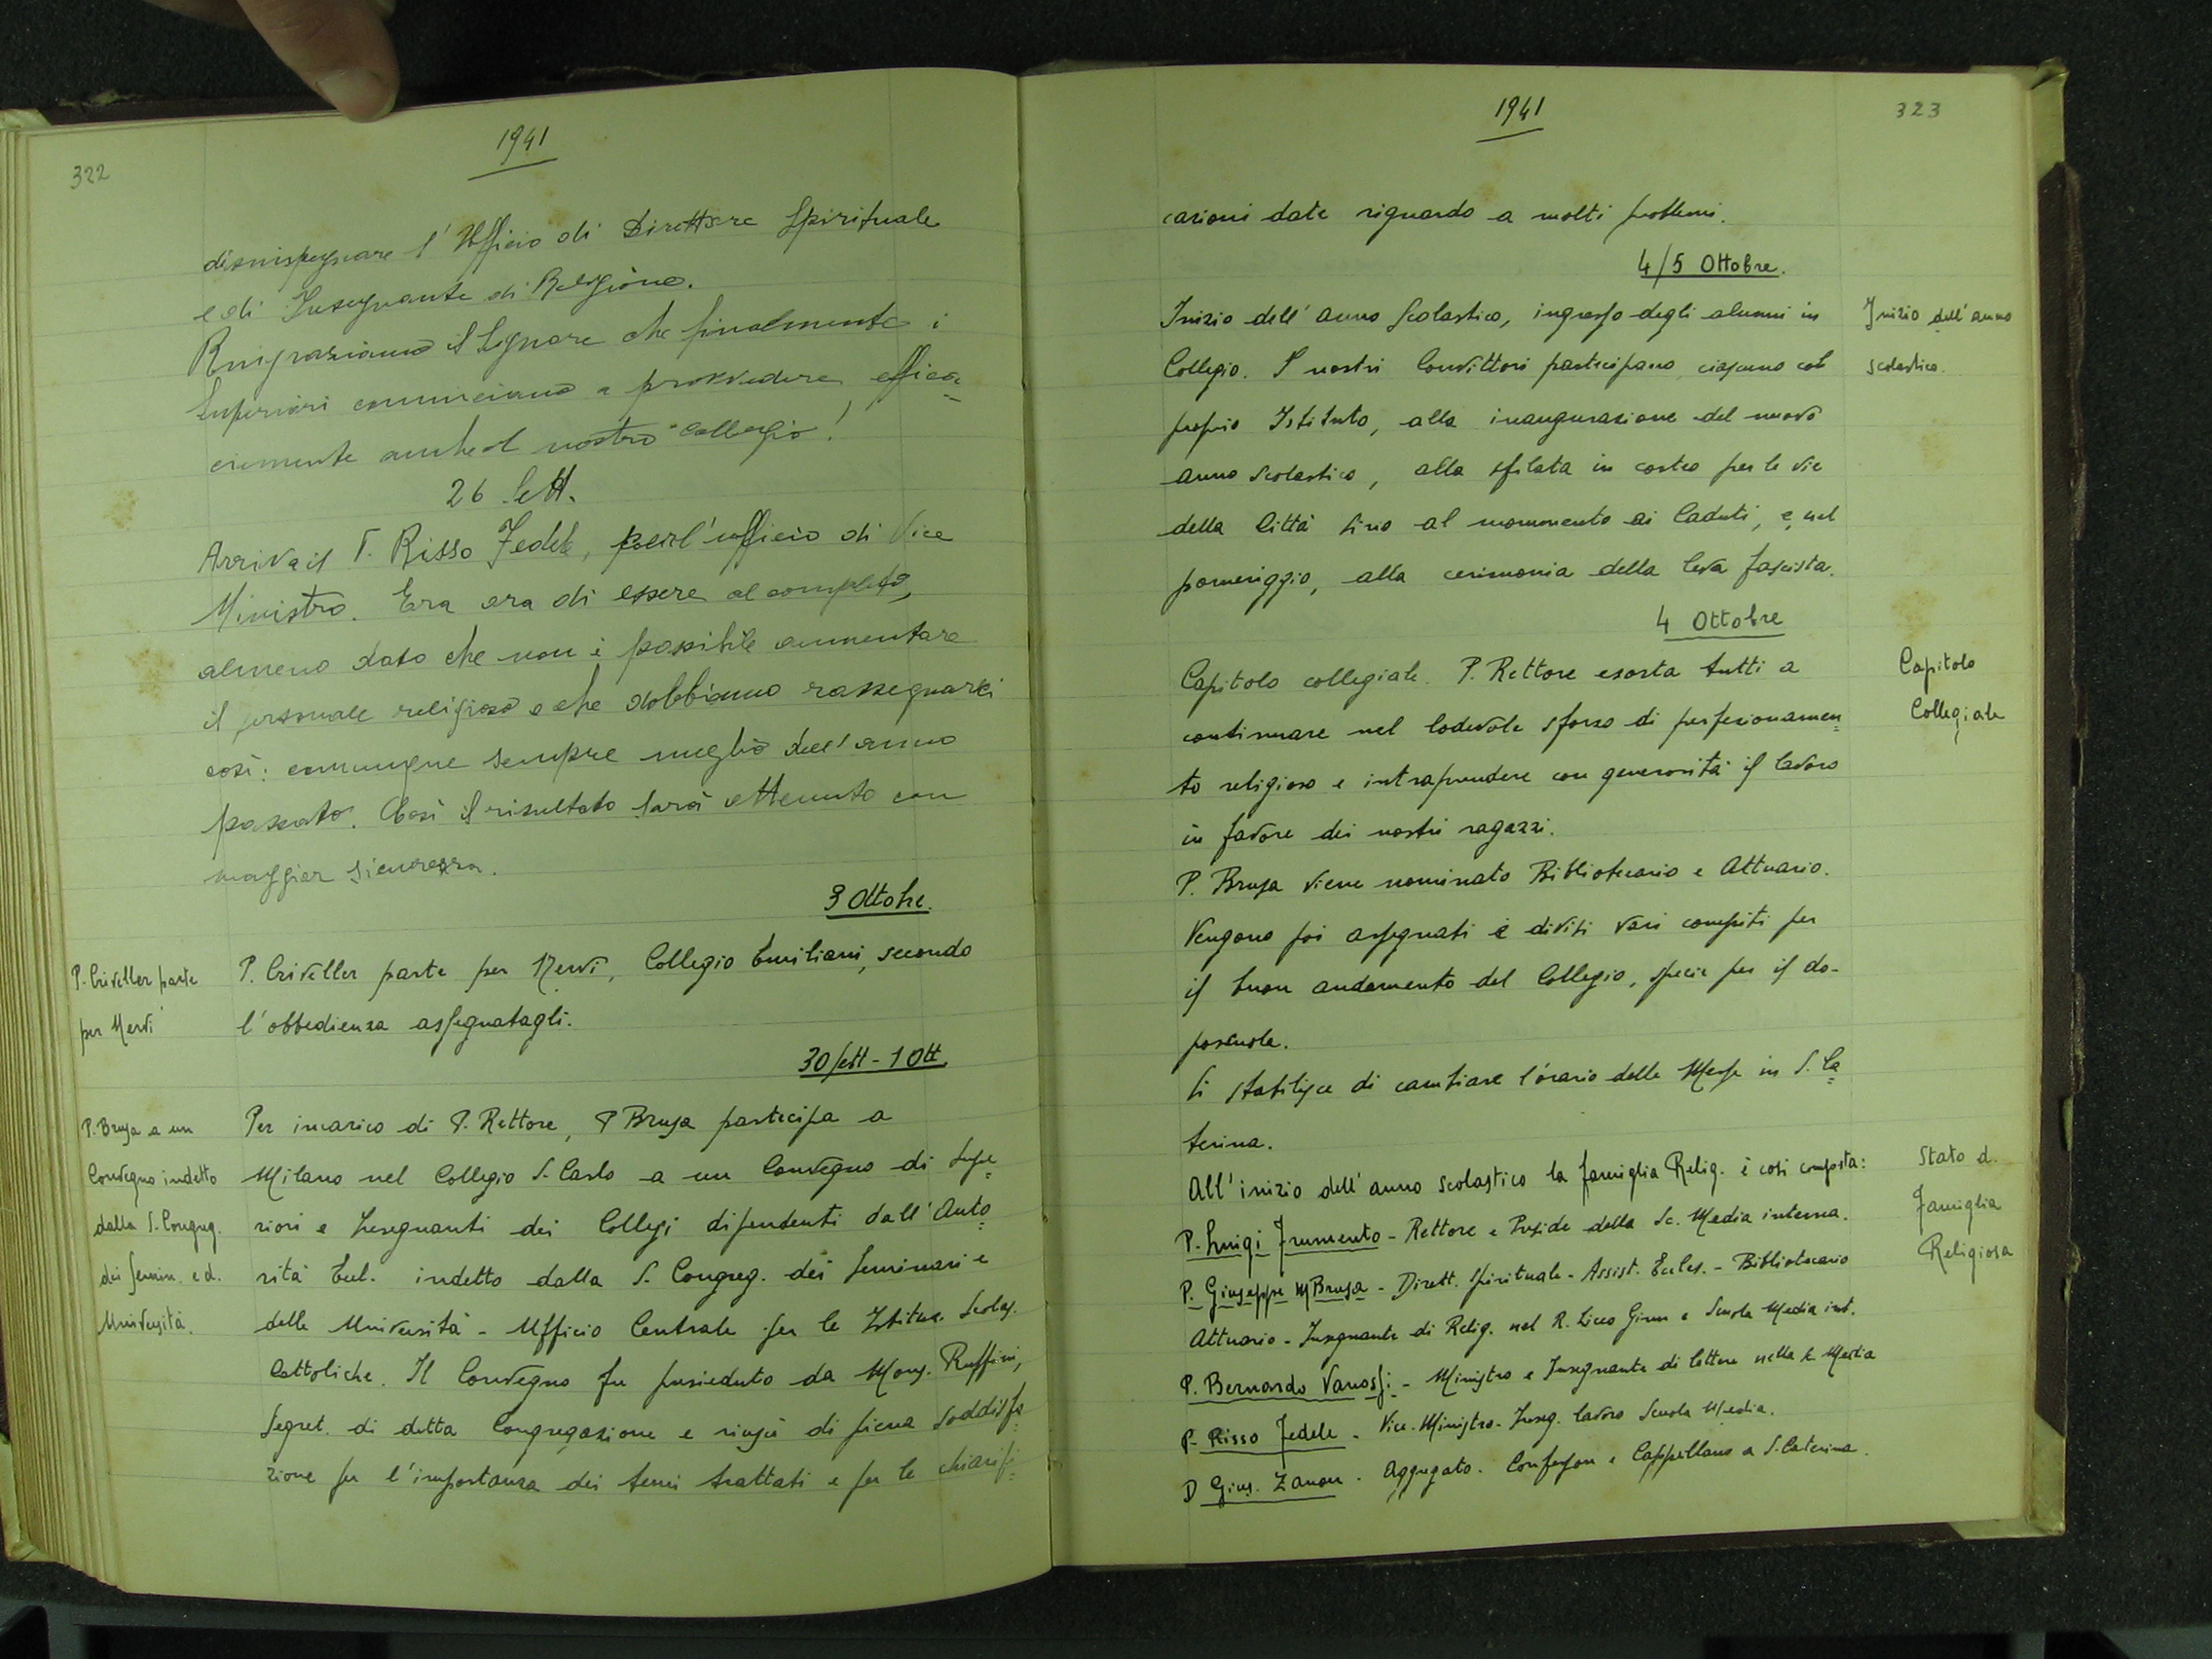 322
1941
disimpegnare l'Ufficio di Direttore Spirituale
e di Insegnante di Religione.
Ringraziamo il Signore che finalmente i
Superiori cominciano a provvedere effica=
cemente anche al nostro Collegio!
26 Sett.
Arriva il P. Risso Fedele, per l'ufficio di Vice
Ministro. Era ora di essere al completo,
almeno dato che non è possibile aumentare
il personale religioso e che dobbiamo rassegnarci
così: comunque sempre meglio dell'anno
passato. Così il risultato sarà ottenuto con
maggior sicurezza.
3 Ottobre.
P. Criveller parte
per Nervi
P. Criveller parte per Nervi, Collegio Emiliani, secondo
l'obbedienza assegnatagli.
30 Sett - 1 Ott.
P. Brusa a un
Convegno indetto
dalla S. Congreg.
dei Semin. e d.
Università.
Per incarico di P. Rettore, P Brusa partecipa a
Milano nel Collegio S. Carlo a un Convegno di Supe=
riori e Insegnanti dei Collegi dipendenti dall'Auto=
rità Eccl. indetto dalla S. Congreg. dei Seminari e
delle Università - Ufficio Centrale per le Istituz. Scolas.
Cattoliche. Il Convegno fu presieduto da Mons. Ruffini,
Segret. di detta Congregazione e riuscì di piena soddisfa=
zione per l'importanza dei temi trattati e per le chiarifi=
1941
323
cazioni date riguardo a molti problemi.
4/5 Ottobre.
Inizio dell'anno
scolastico.
Inizio dell'anno scolastico, ingresso degli alunni in
Collegio. I nostri Convittori partecipano, ciascuno col
proprio Istituto, alla inaugurazione del nuovo
anno scolastico, alla sfilata in corteo per le vie
della Città sino al monumento ai Caduti, e, nel
pomeriggio, alla cerimonia della leva fascista.
4 Ottobre
Capitolo
Collegiale
Capitolo collegiale. P. Rettore esorta tutti a
continuare nel lodevole sforzo di perfezionamen=
to religioso e intraprendere con generosità il lavoro
in favore dei nostri ragazzi.
P. Brusa viene nominato Bibliotecario e Attuario.
Vengono poi assegnati e divisi vari compiti per
il buon andamento del Collegio, specie per il do-
poscuola.
Si stabilisce di cambiare l'orario delle Messe in S. Ca=
terina.
Stato d.
Famiglia
Religiosa
All'inizio dell'anno scolastico la famiglia Relig. è così composta:
P. Luigi Frumento - Rettore e Preside della Sc. Media interna.
P. Giuseppe M Brusa - Dirett. Spirituale - Assist. Eccles. - Bibliotecario
Attuario - Insegnante di Relig. nel R. Liceo Ginn e Scuola Media int.
P. Bernardo Vanossi - Ministro e Insegnante di lettere nella Sc. Media
P. Risso Fedele - Vice-Ministro - Inseg. lavoro Scuola Media.
D Gius. Zanon - Aggregato - Confessore e Cappellano a S. Caterina.